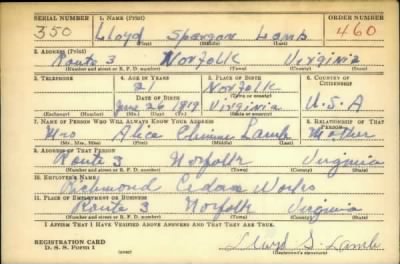 SERIAL NUMBER 1. NAME (Print) ORDER NUMBER
350 Lloyd Spargar Lamb 460
(First) (Middle) (Last)
2. ADDRESS (Print)
Route 3 Norfolk Virginia
(Number and street or R. F. D. number) (Town) (County) (State)
3. TELEPHONE 4. AGE IN YEARS 5. PLACE OF BIRTH 6. COUNTRY OF CITIZENSHIP
21 Norfolk
DATE OF BIRTH (Town or county)
June 26 1919 Virginia U.S.A
(Exchange) (Number) (Mo.) (Day) (Yr.) (State or country)
7. NAME OF PERSON WHO WILL ALWAYS KNOW YOUR ADDRESS 8. RELATIONSHIP OF THAT PERSON
Mrs Alice Lamb Mother
(Mr., Mrs., Miss) (First) (Middle) (Last)
9. ADDRESS OF THAT PERSON
Route 3 Norfolk Virginia
(Number and street or R. F. D. number) (Town) (County) (State)
10. EMPLOYER'S NAME
Richmond Cedar Works
11. PLACE OF EMPLOYMENT OR BUSINESS
Route 3 Norfolk Virginia
(Number and street or R. F. D. number) (Town) (County) (State)
I AFFIRM THAT I HAVE VERIFIED ABOVE ANSWERS AND THAT THEY ARE TRUE.
REGISTRATION CARD
D. S. S. Form 1 Lloyd S. Lamb
(Registrant's signature)